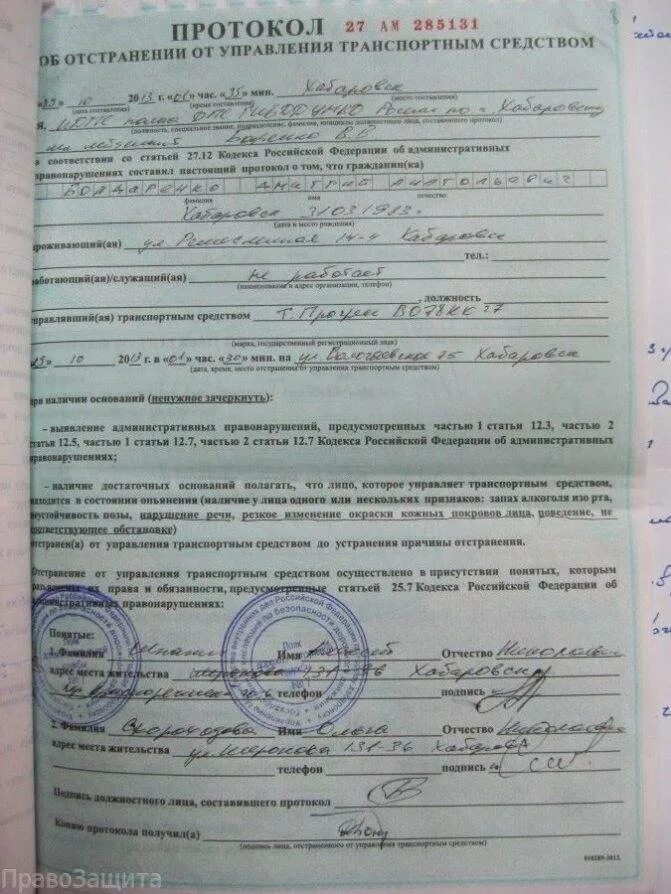 ПРОТОКОЛ 27 АМ 285131
ОБ ОТСТРАНЕНИИ ОТ УПРАВЛЕНИЯ ТРАНСПОРТНЫМ СРЕДСТВОМ
10 2013 г. «01» час. «35» мин. Хабаровск
(дата составления) (время составления) (место составления)
Я, полка ДПС России по г. Хабаровску
(должность, специальное звание, подразделение, фамилия, инициалы должностного лица, составившего протокол)
В.В
в соответствии со статьей 27.12 Кодекса Российской Федерации об административных
правонарушениях составил настоящий протокол о том, что гражданин(ка)
БОНДАРЕНКО ДМИТРИЙ АНАТОЛЬЕВИЧ
фамилия имя отчество
Хабаровск 31.03.1983г.
(дата и место рождения)
проживающий(ая) ул. Ремесленная 14-4 Хабаровск
тел.:
работающий(ая)/служащий(ая) не работает
(наименование и адрес организации, телефон)
, должность
управлявший(ая) транспортным средством Т. 27
(марка, государственный регистрационный знак)
10 2013 г. в «01» час. «30» мин. на ул. 25 Хабаровск
(дата, время, место отстранения от управления транспортным средством)
при наличии оснований (ненужное зачеркнуть):
– выявление административных правонарушений, предусмотренных частью 1 статьи 12.3, частью 2
статьи 12.5, частью 1 статьи 12.7, частью 2 статьи 12.7 Кодекса Российской Федерации об административных
правонарушениях;
– наличие достаточных оснований полагать, что лицо, которое управляет транспортным средством,
находится в состоянии опьянения (наличие у лица одного или нескольких признаков: запах алкоголя изо рта,
неустойчивость позы, нарушение речи, резкое изменение окраски кожных покровов лица, поведение, не
соответствующее обстановке)
отстранен(а) от управления транспортным средством до устранения причины отстранения.
Отстранение от управления транспортным средством осуществлено в присутствии понятых, которым
разъяснены их права и обязанности, предусмотренные статьей 25.7 Кодекса Российской Федерации об
административных правонарушениях:
Понятые:
1. Фамилия Имя Отчество Николаевич
адрес места жительства 131-36 Хабаровск
телефон подпись
2. Фамилия Скороходова Имя Ольга Отчество Николаевна
адрес места жительства 131-36 Хабаровск
телефон подпись
Подпись должностного лица, составившего протокол
Копию протокола получил(а)
(подпись лица, отстраненного от управления транспортным средством)
ПравоЗащита